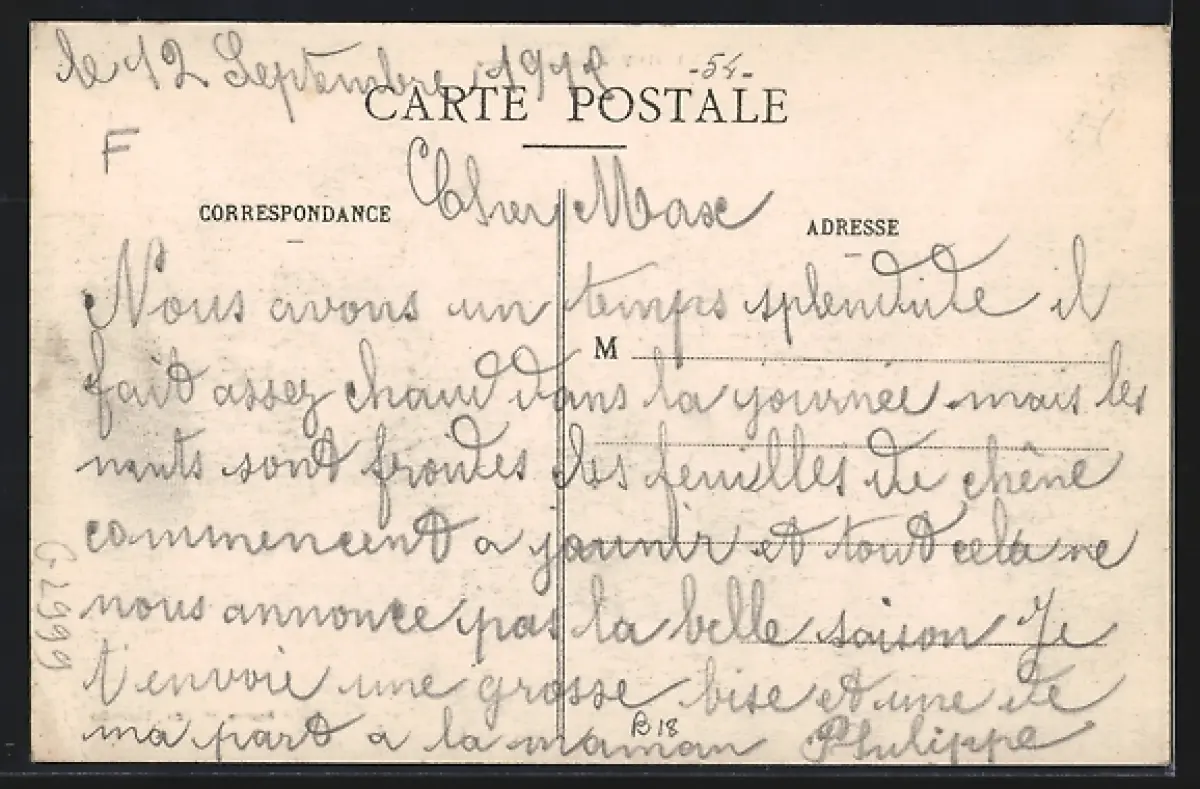 le 12 Septembre 1912
-54-
CARTE POSTALE
F
Cher Max
CORRESPONDANCE
ADRESSE
Nous avons un temps splendide il
M
fait assez chaud dans la journée mais les
nuits sont froides les feuilles de chêne
commencent a jaunir et tout cela ne
nous annonce pas la belle saison Je
t'envoie une grosse bise et une de
ma part a la maman Philippe
B18
G2999